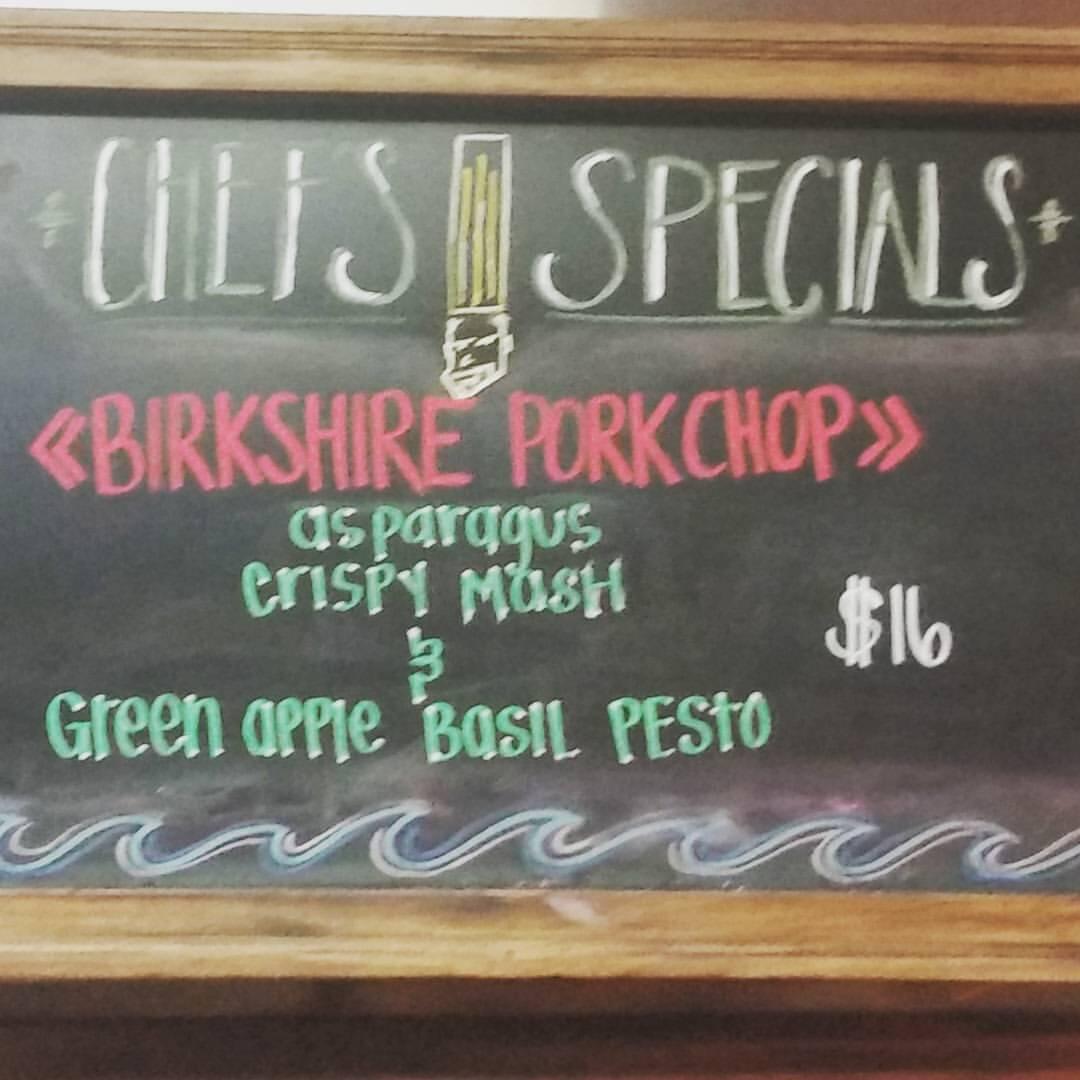 CHEFS SPECIALS
«BIRKSHIRE PORKCHOP»
asparagus
CrISPY MasH
&
$16
Green apple BasIL PEStO